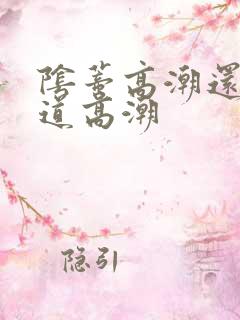 陰蒂高潮還
道高潮
隐引